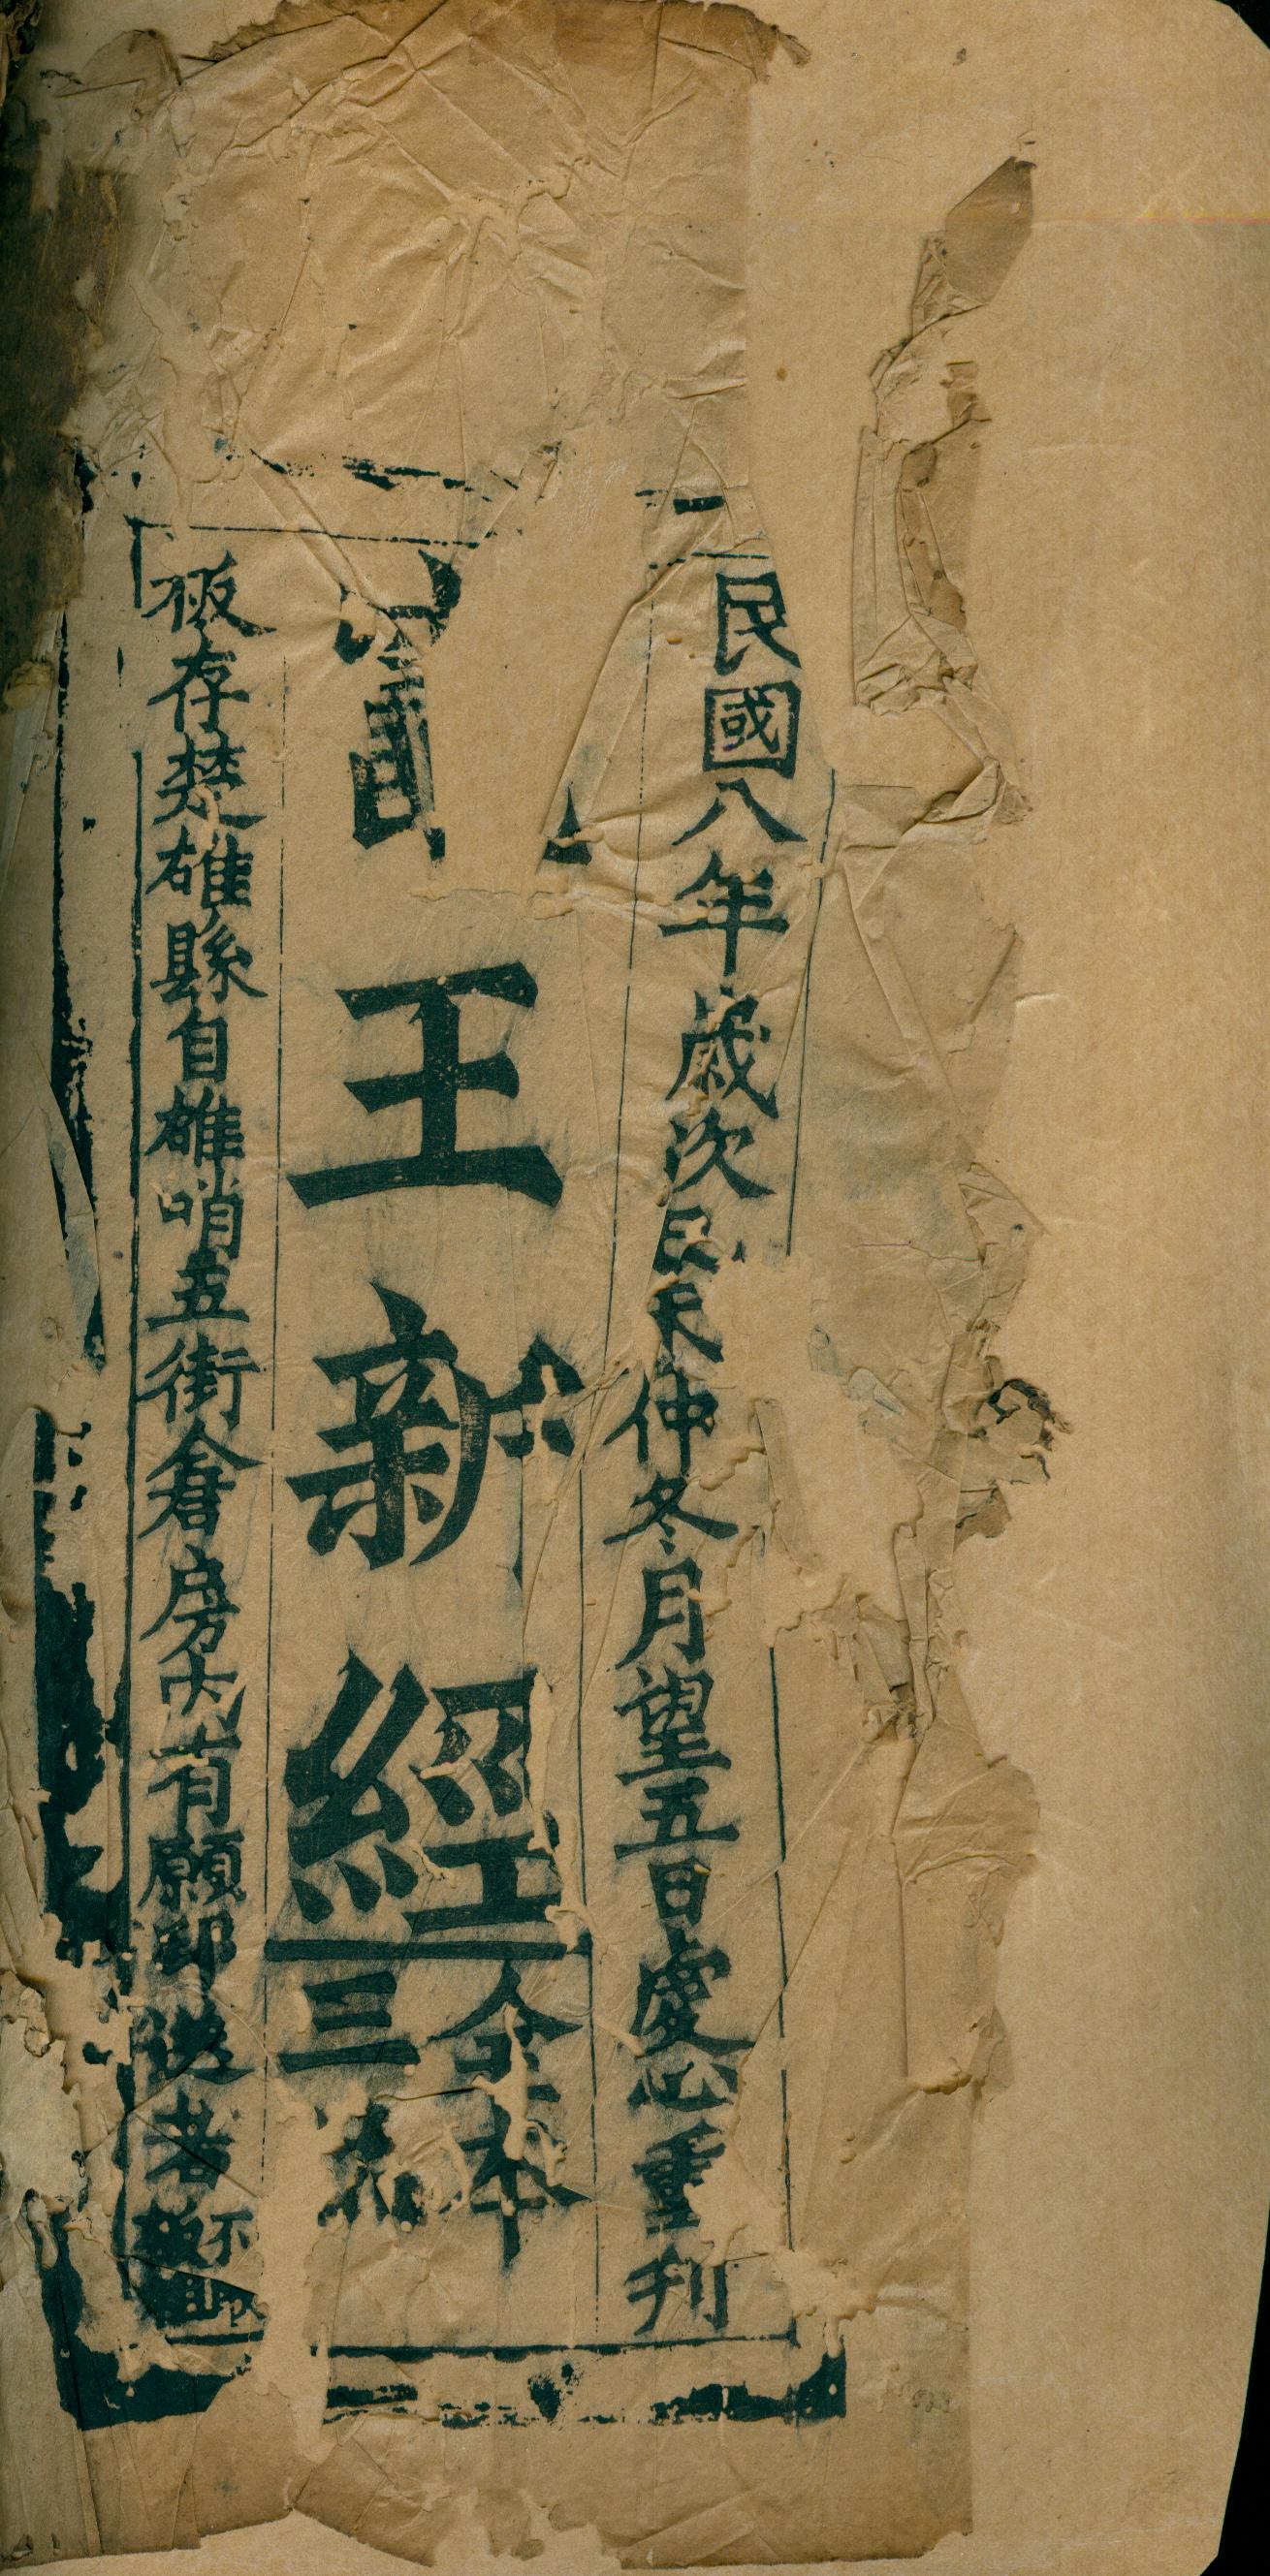 民國八年歲次己未仲冬月望五日慶忠重刊
王新經
全本
三
板存楚雄縣自雄哨五街倉房內有願印送者板不